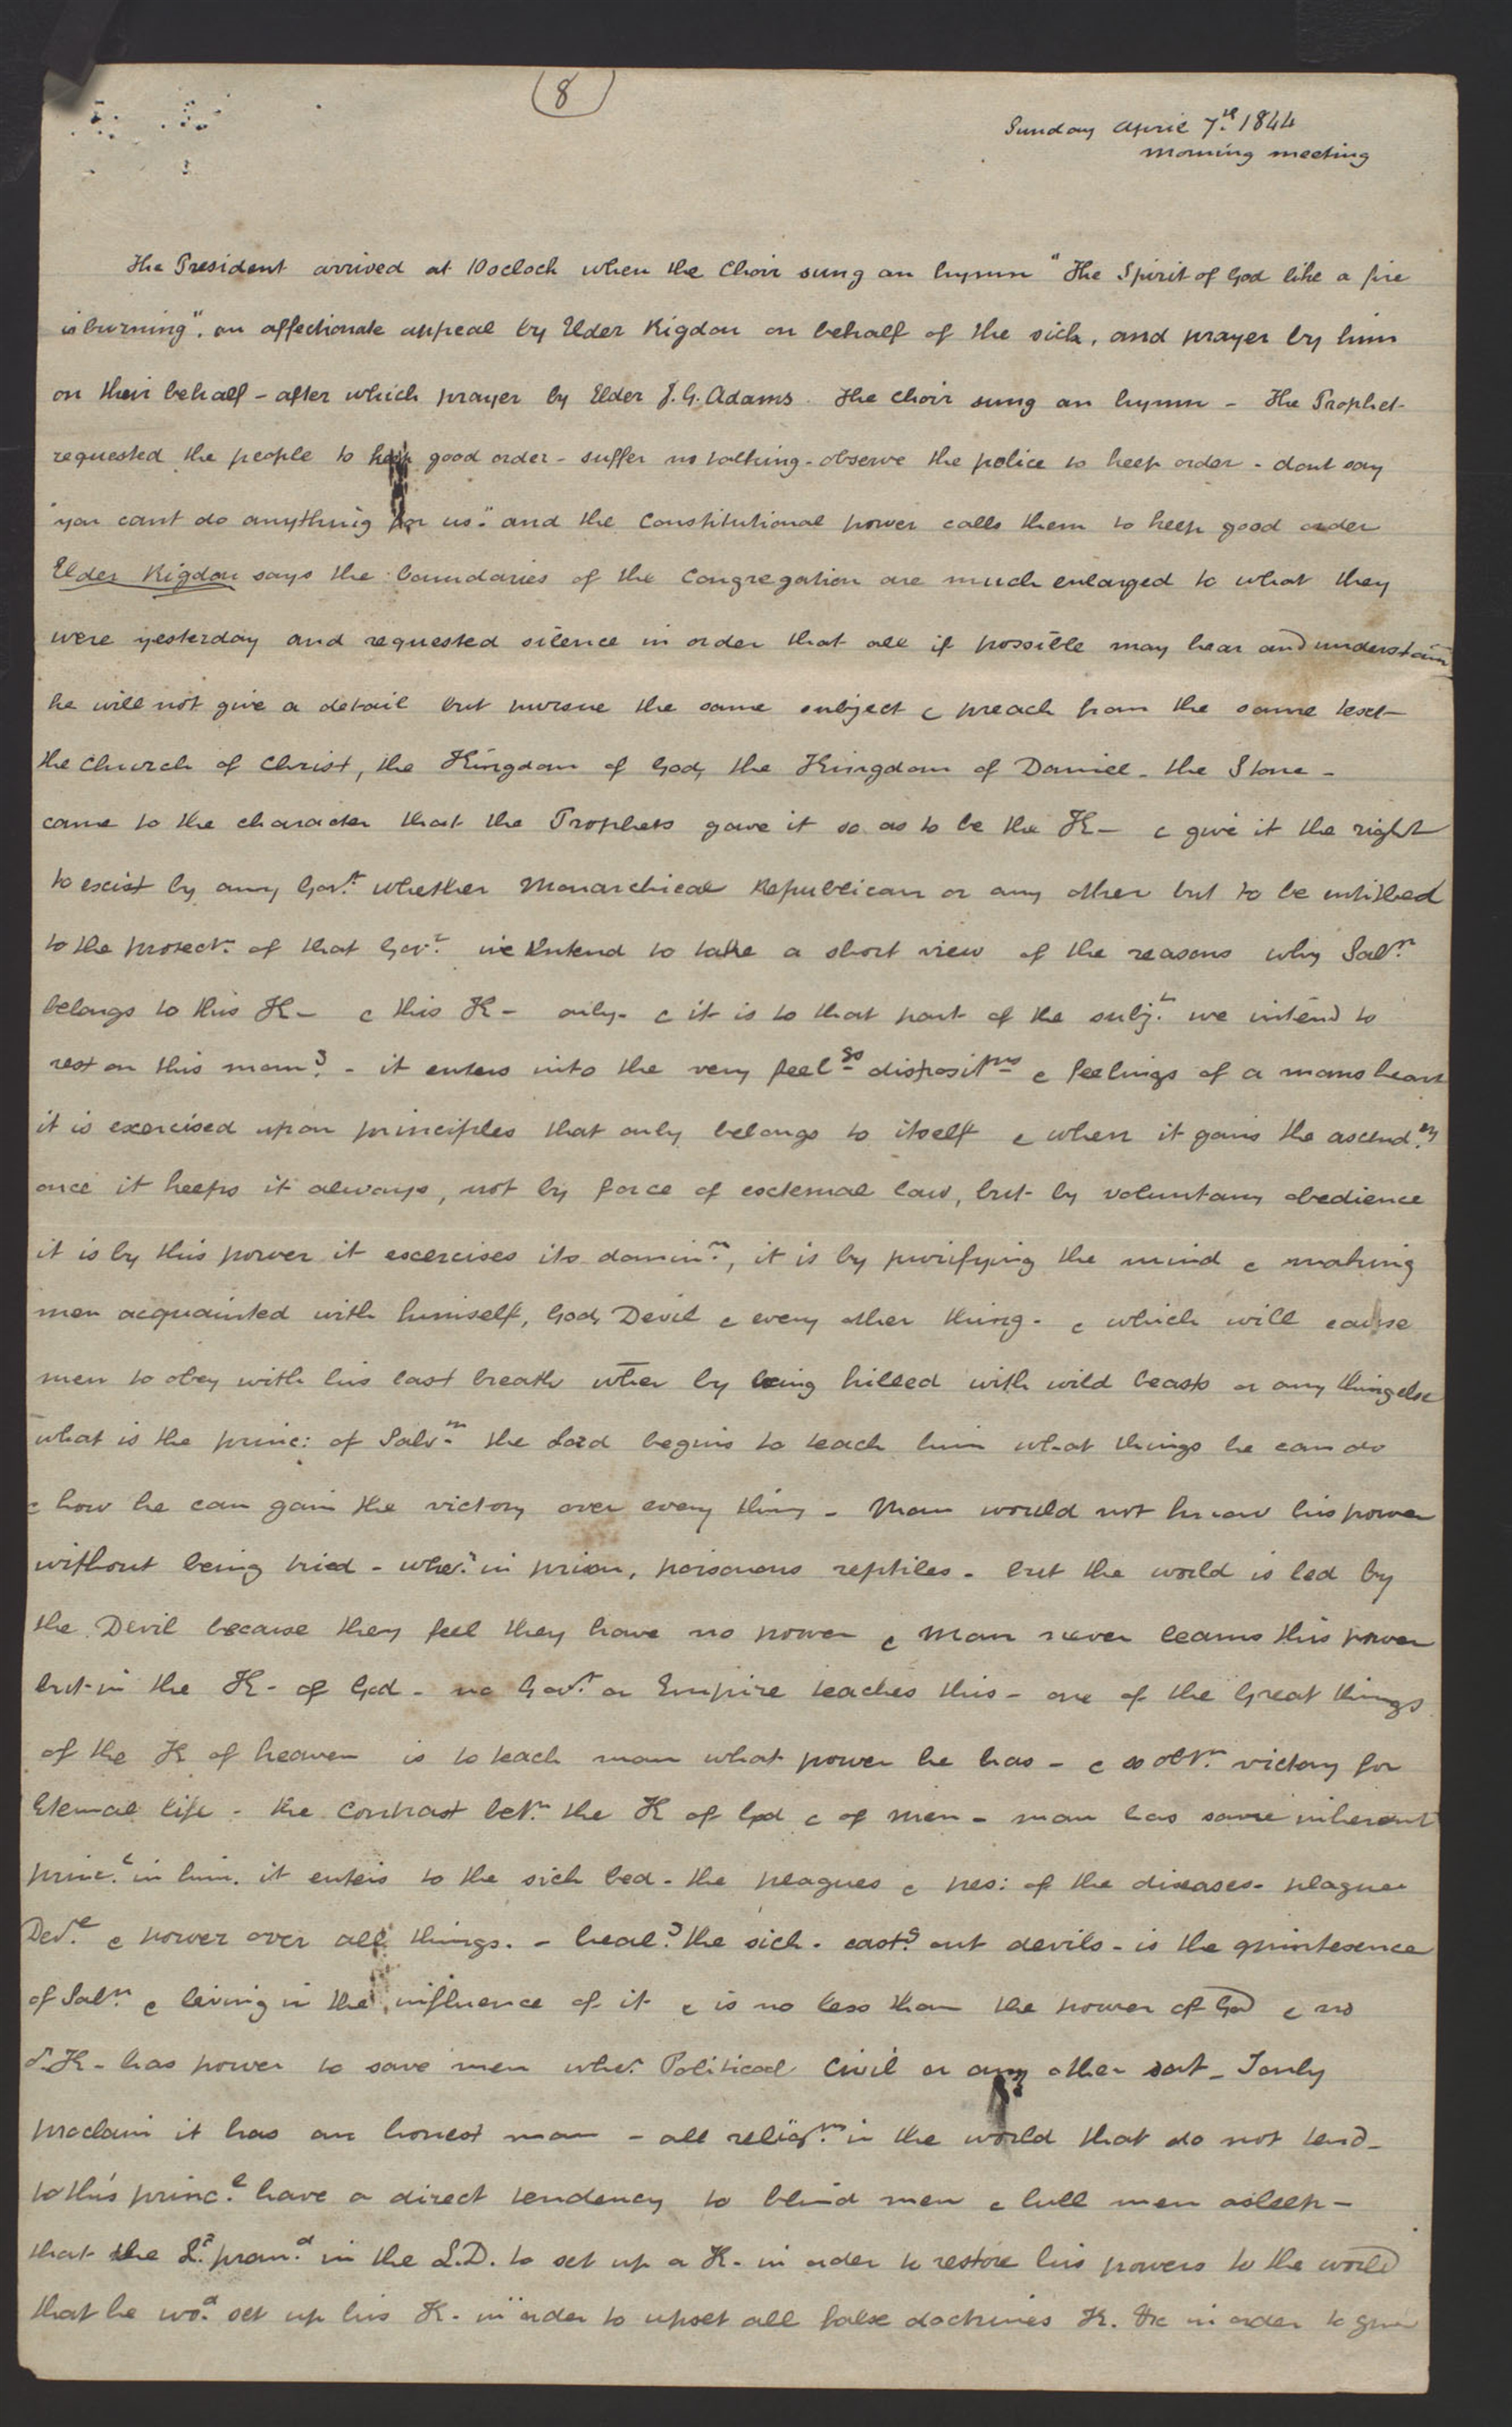 (8)
Sunday April 7th. 1844
morning meeting
The President arrived at 10 oclock when the Choir sung an hymn "The Spirit of God like a fire
is burning". an affectionate appeal by Elder Rigdon on behalf of the sick, and prayer by him
on their behalf - after which prayer by Elder J. G. Adams. The choir sung an hymn - The Prophet
requested the people to keep good order - suffer no talking - observe the police to keep order - dont say
"you cant do anything for us." and the Constitutional power calls them to keep good order
Elder Rigdon says the boundaries of the Congregation are much enlarged to what they
were yesterday and requested silence in order that all if possible may hear and understand
he will not give a detail but pursue the same subject & preach from the same text
the Church of Christ, the Kingdom of God, the Kingdom of Daniel - the Stone -
came to the character that the Prophets gave it so as to be the K - & give it the right
to exist by any Govt. whether Monarchical Republican or any other but to be entitled
to the protecn. of that Govt. we intend to take a short view of the reasons why Saln.
belongs to this K - & this K - only - & it is to that part of the subjt. we intend to
rest on this morng. - it enters into the very feelgs disposit.ns & feelings of a mans heart
it is exercised upon principles that only belongs to itself & when it gains the ascend.cy
once it keeps it always, not by force of external law, but by voluntary obedience
it is by this power it exercises its domin.n, it is by purifying the mind & making
men acquainted with himself, God, Devil & every other thing - & which will cause
men to obey with his last breath wher by being killed with wild beasts or any thing else
what is the princ: of Salv.n the Lord begins to teach him what things he can do
& how he can gain the victory over every thing - Man would not know his power
without being tried - wher. in prison, poisonous reptiles - but the world is led by
the Devil because they feel they have no power & man never learns this power
but in the K - of God - no Govt. or Empire teaches this - one of the Great things
of the K of heaven is to teach man what power he has - & so obtn. victory for
Eternal life - the contrast betn. the K of God & of men - man has some inherent
princ.l in him. it enters to the sick bed - the plagues & pes: of the diseases - plague
Devl. & power over all things. - healg. the sick - castg. out devils - is the quintesence
of Saln. & living in the influence of it & is no less than the power of God & no
o.K - has power to save men wher. Political Civil or any other sort - I only
proclaim it has an honest man - all relign. in the world that do not tend
to this princ.l have a direct tendency to blind men & lull men asleep -
that the Ld. prom.d in the L.D. to set up a K - in order to restore his powers to the world
that he wod. set up his K - in order to upset all false doctrines K. &c in order to give